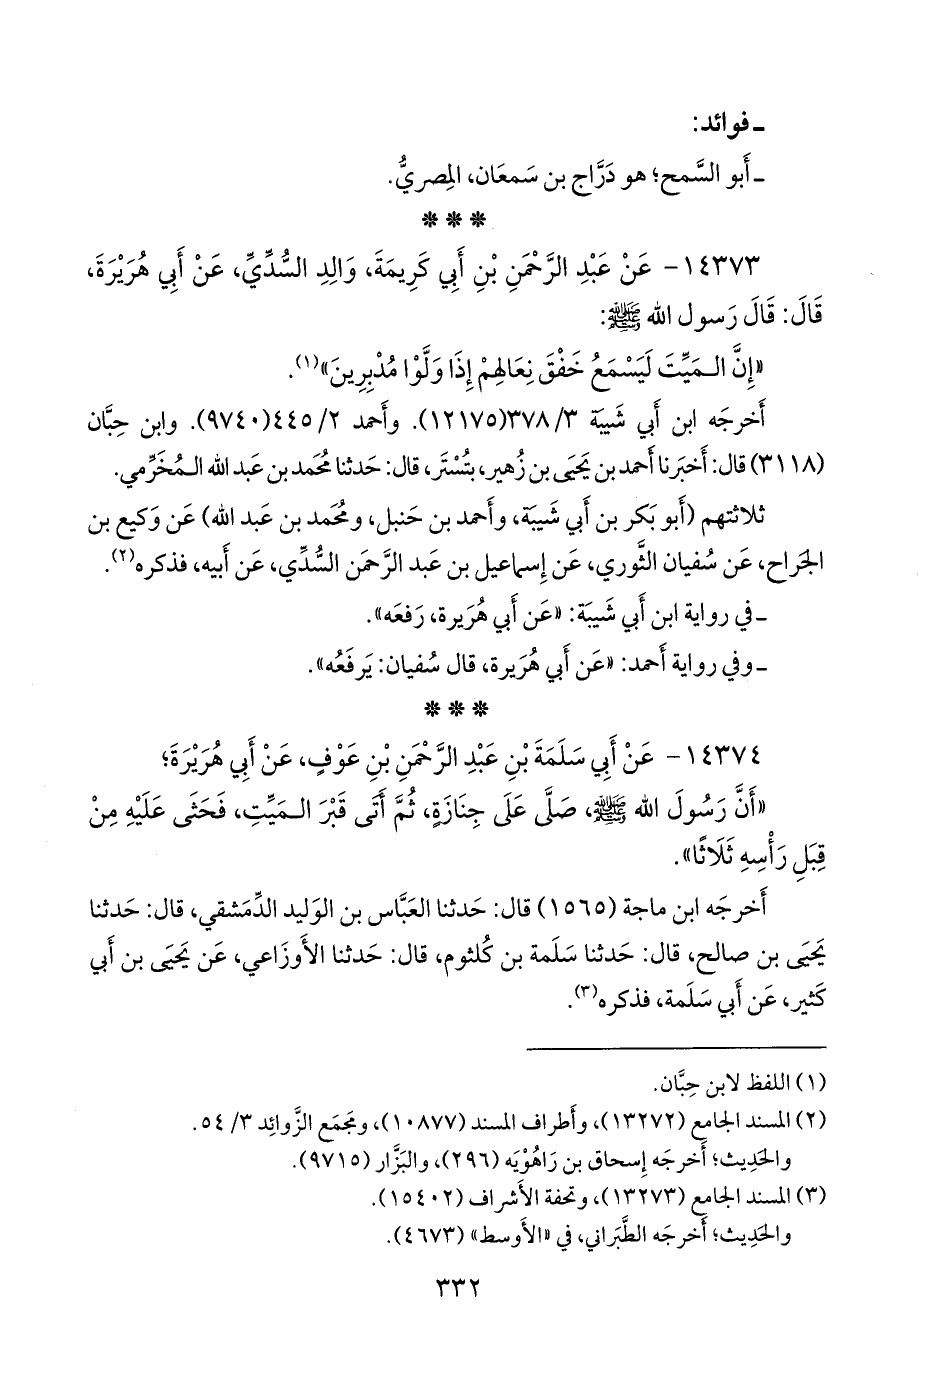 ـ فوائد:
ـ أَبو السَّمح؛ هو دَرَّاج بن سَمعَان، المِصريُّ.
* * *
١٤٣٧٣- عَنْ عَبْدِ الرَّحْمَنِ بْنِ أَبِي كَرِيمَةَ، وَالِدِ السُّدِّيِّ، عَنْ أَبِي هُرَيْرَةَ،
قَالَ: قَالَ رَسول الله ﷺ:
«إِنَّ الـمَيِّتَ لَيَسْمَعُ خَفْقَ نِعَالِهِمْ إِذَا وَلَّوْا مُدْبِرِينَ»(١).
أَخرجَه ابن أَبي شَيبَة ٣/ ٣٧٨(١٢١٧٥). وأَحمد ٢/ ٤٤٥(٩٧٤٠). وابن حِبَّان
(٣١١٨) قال: أَخبَرنا أَحمد بن يَحيَى بن زُهير، بتُستَر، قال: حَدثنا مُحمد بن عَبد الله الـمُخَرِّمي.
ثلاثتهم (أَبو بَكر بن أَبي شَيبَة، وأَحمد بن حَنبل، ومُحَمد بن عَبد الله) عَن وَكيع بن
الجَراح، عَن سُفيان الثَّوري، عَن إِسماعيل بن عَبد الرَّحمَن السُّدِّي، عَن أَبيه، فذكره(٢).
ـ في رواية ابن أَبي شَيبَة: «عَن أَبي هُرَيرة، رَفعَه».
ـ وفي رواية أَحمد: «عَن أَبي هُرَيرة، قال سُفيان: يَرفَعُه».
* * *
١٤٣٧٤- عَنْ أَبِي سَلَمَةَ بْنِ عَبْدِ الرَّحْمَنِ بْنِ عَوْفٍ، عَنْ أَبِي هُرَيْرَةَ؛
«أَنَّ رَسُولَ الله ﷺ، صَلَّى عَلَى جِنَازَةٍ، ثُمَّ أَتَى قَبْرَ الـمَيِّتِ، فَحَثَى عَلَيْهِ مِنْ
قِبَلِ رَأْسِهِ ثَلَاثًا».
أَخرجَه ابن ماجة (١٥٦٥) قال: حَدثنا العَبَّاس بن الوَليد الدِّمَشقي، قال: حَدثنا
يَحيَى بن صالح، قال: حَدثنا سَلَمة بن كُلثوم، قال: حَدثنا الأَوزَاعي، عَن يَحيَى بن أَبي
كَثير، عَن أَبي سَلَمة، فذكره(٣).
(١) اللفظ لابن حِبَّان.
(٢) المسند الجامع (١٣٢٧٢)، وأَطراف المسند (١٠٨٧٧)، ومَجمَع الزَّوائِد ٣/ ٥٤.
والحَدِيث؛ أَخرجَه إِسحاق بن رَاهُوْيَه (٢٩٦)، والبَزَّار (٩٧١٥).
(٣) المسند الجامع (١٣٢٧٣)، وتحفة الأَشراف (١٥٤٠٢).
والحَدِيث؛ أَخرجَه الطَّبَراني، في «الأَوسط» (٤٦٧٣).
٣٣٢